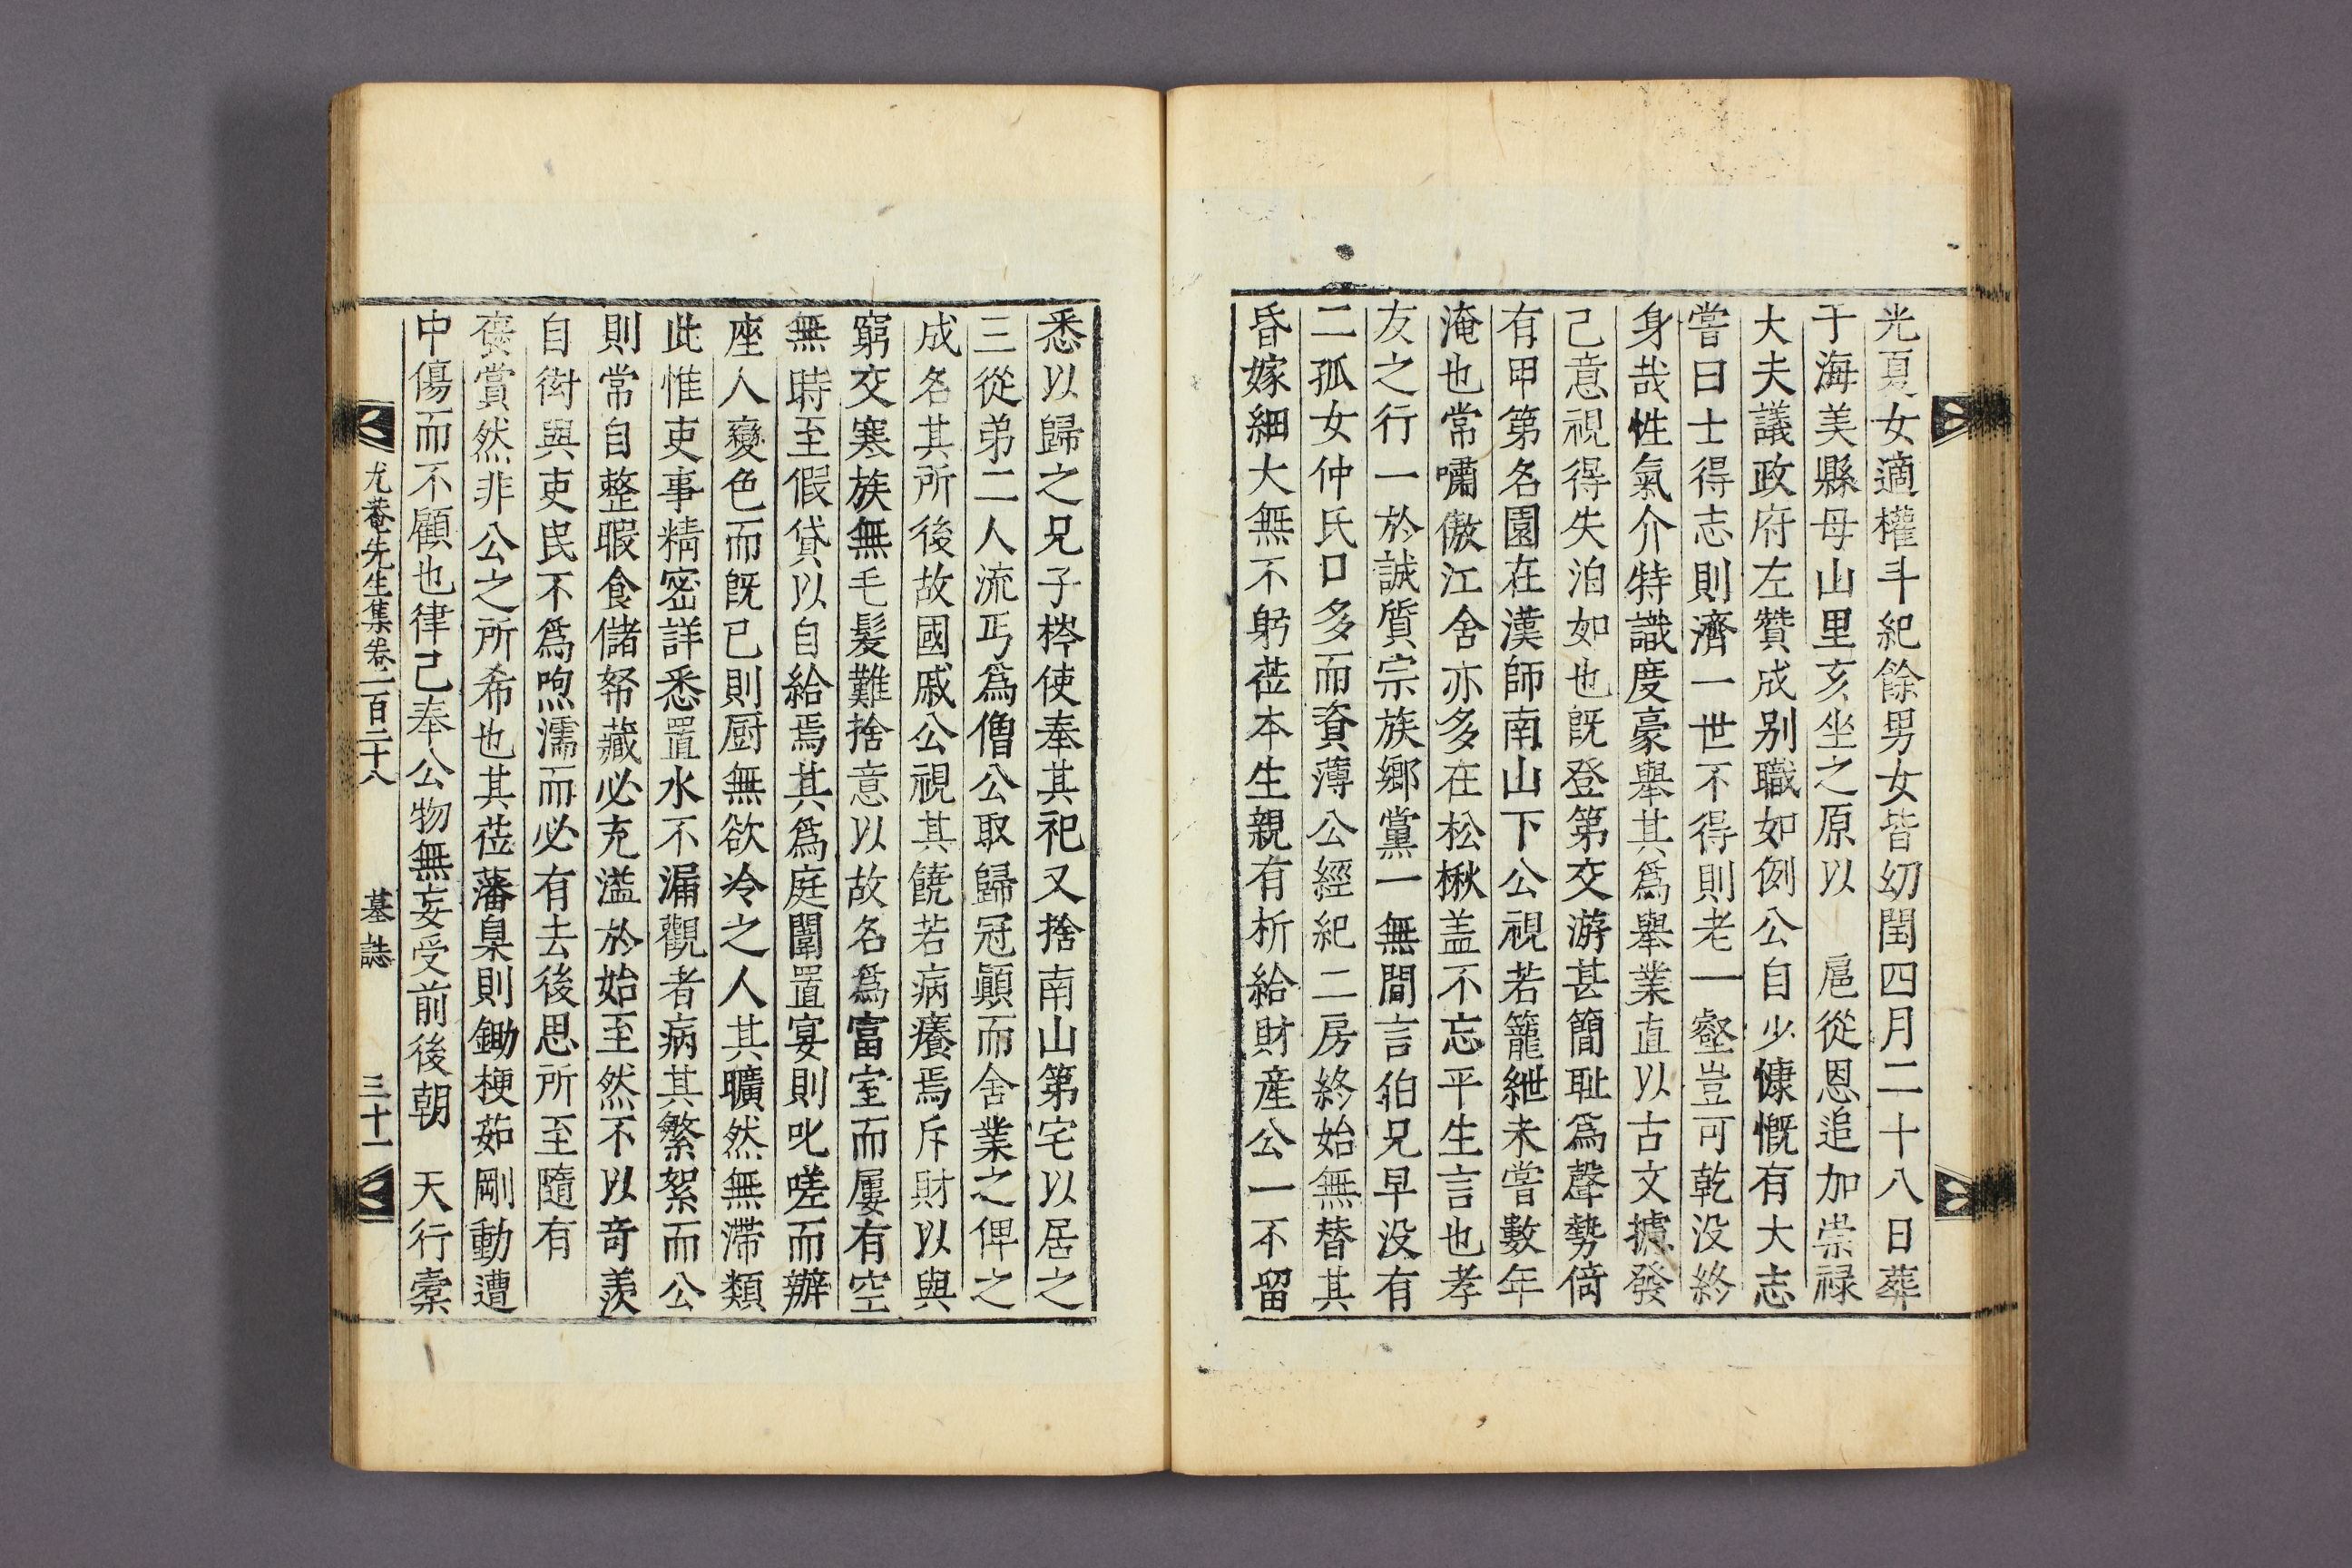 光夏女適權斗紀餘男女皆幼閏四月二十八日葬
于海美縣母山里亥坐之原以　扈從恩追加崇祿
大夫議政府左贊成別職如例公自少慷慨有大志
嘗曰士得志則濟一世不得則老一壑豈可乾没終
身哉性氣介特識度豪舉其爲舉業直以古文攄發
己意視得失泊如也旣登第交游甚簡恥爲聲勢倚
有甲第名園在漢師南山下公視若籠紲未嘗數年
淹也常嘯傲江舍亦多在松楸盖不忘平生言也孝
友之行一於誠質宗族鄉黨一無間言伯兄早没有
二孤女仲氏口多而資薄公經紀二房終始無替其
昏嫁細大無不躬莅本生親有析給財産公一不留
悉以歸之兄子㭒使奉其祀又捨南山第宅以居之
三從弟二人流丐爲僧公取歸冠顚而舍業之俾之
成名其所後故國戚公視其饒若病癢焉斥財以與
窮交寒族無毛髮難捨意以故名爲富室而屢有空
無時至假貸以自給焉其爲庭闈置宴則叱嗟而辦
座人變色而旣已則厨無欲冷之人其曠然無滯類
此惟吏事精密詳悉置水不漏觀者病其繁絮而公
則常自整暇食儲帑藏必充溢於始至然不以奇羨
自衒與吏民不爲喣濡而必有去後思所至隨有
褒賞然非公之所希也其莅藩臬則鋤梗茹剛動遭
中傷而不顧也律己奉公物無妄受前後朝　天行橐
尤菴先生集卷一百二十八　墓誌　三十一